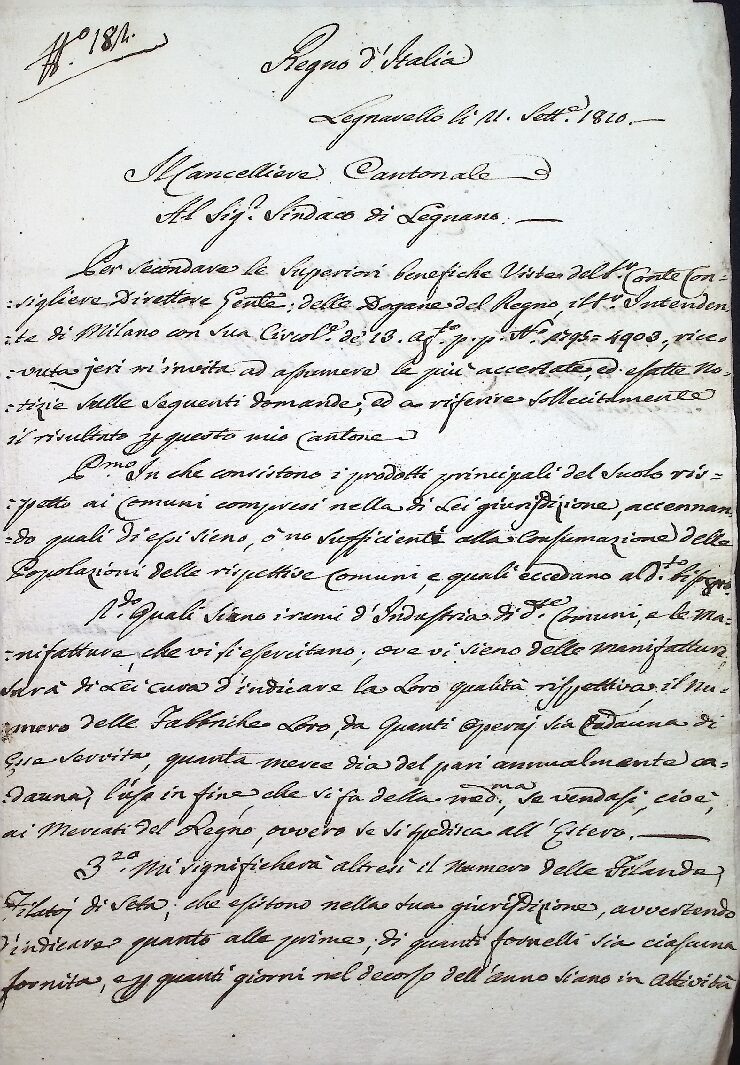 N.º 182.
Regno d'Italia
Legnarello li 11. Sett.e 1810.
Il Cancelliere Cantonale
Al Sig.r Sindaco di Legnano.
Per secondare le superiori benefiche Viste del S.r Conte Con=
=sigliere Direttore Gen.le delle Dogane del Regno, il S.r Intenden
=te di Milano con sua Circol.e de' 13. Ag.to p. p. N.º 4903, rice=
=vuta jeri m'invita ad assumere le più accertate, ed esatte No=
tizie sulle seguenti domande, ed a riferire sollecitamente
il risultato p questo mio Cantone
P.mo In che consistono i prodotti principali del Suolo ris=
=petto ai Comuni compresi nella di Lei giurisdizione, accennan
=do quali di essi sieno, o nò sufficienti alla Consumazione delle
Popolazioni delle rispettive Comuni, e quali eccedano al d.to bisogno
2.do Quali siano i rami d'Industria di d.te Comuni, e le Ma=
=nifatture, che vi si esercitano; ove vi sieno delle manifatture,
sarà di Lei cura d'indicare la Loro qualità rispettiva, il Nu=
mero delle Fabbriche Loro, da quanti Operaj sia Cadauna di
Esse servita, quanta merce dia del pari annualmente ca=
=dauna, l'uso in fine, che si fa della med.ma, se vendasi, cioè,
ai Mercati del Regno, ovvero se si spedisca all'Estero.
3.zo Mi significherà altresì il Numero delle Filande,
Filatoj di Seta, che esistono nella sua giurisdizione, avvertendo
d'indicare quanto alle prime, di quanti fornelli sia ciascuna
fornita, e p quanti giorni nel decorso dell'anno siano in attività